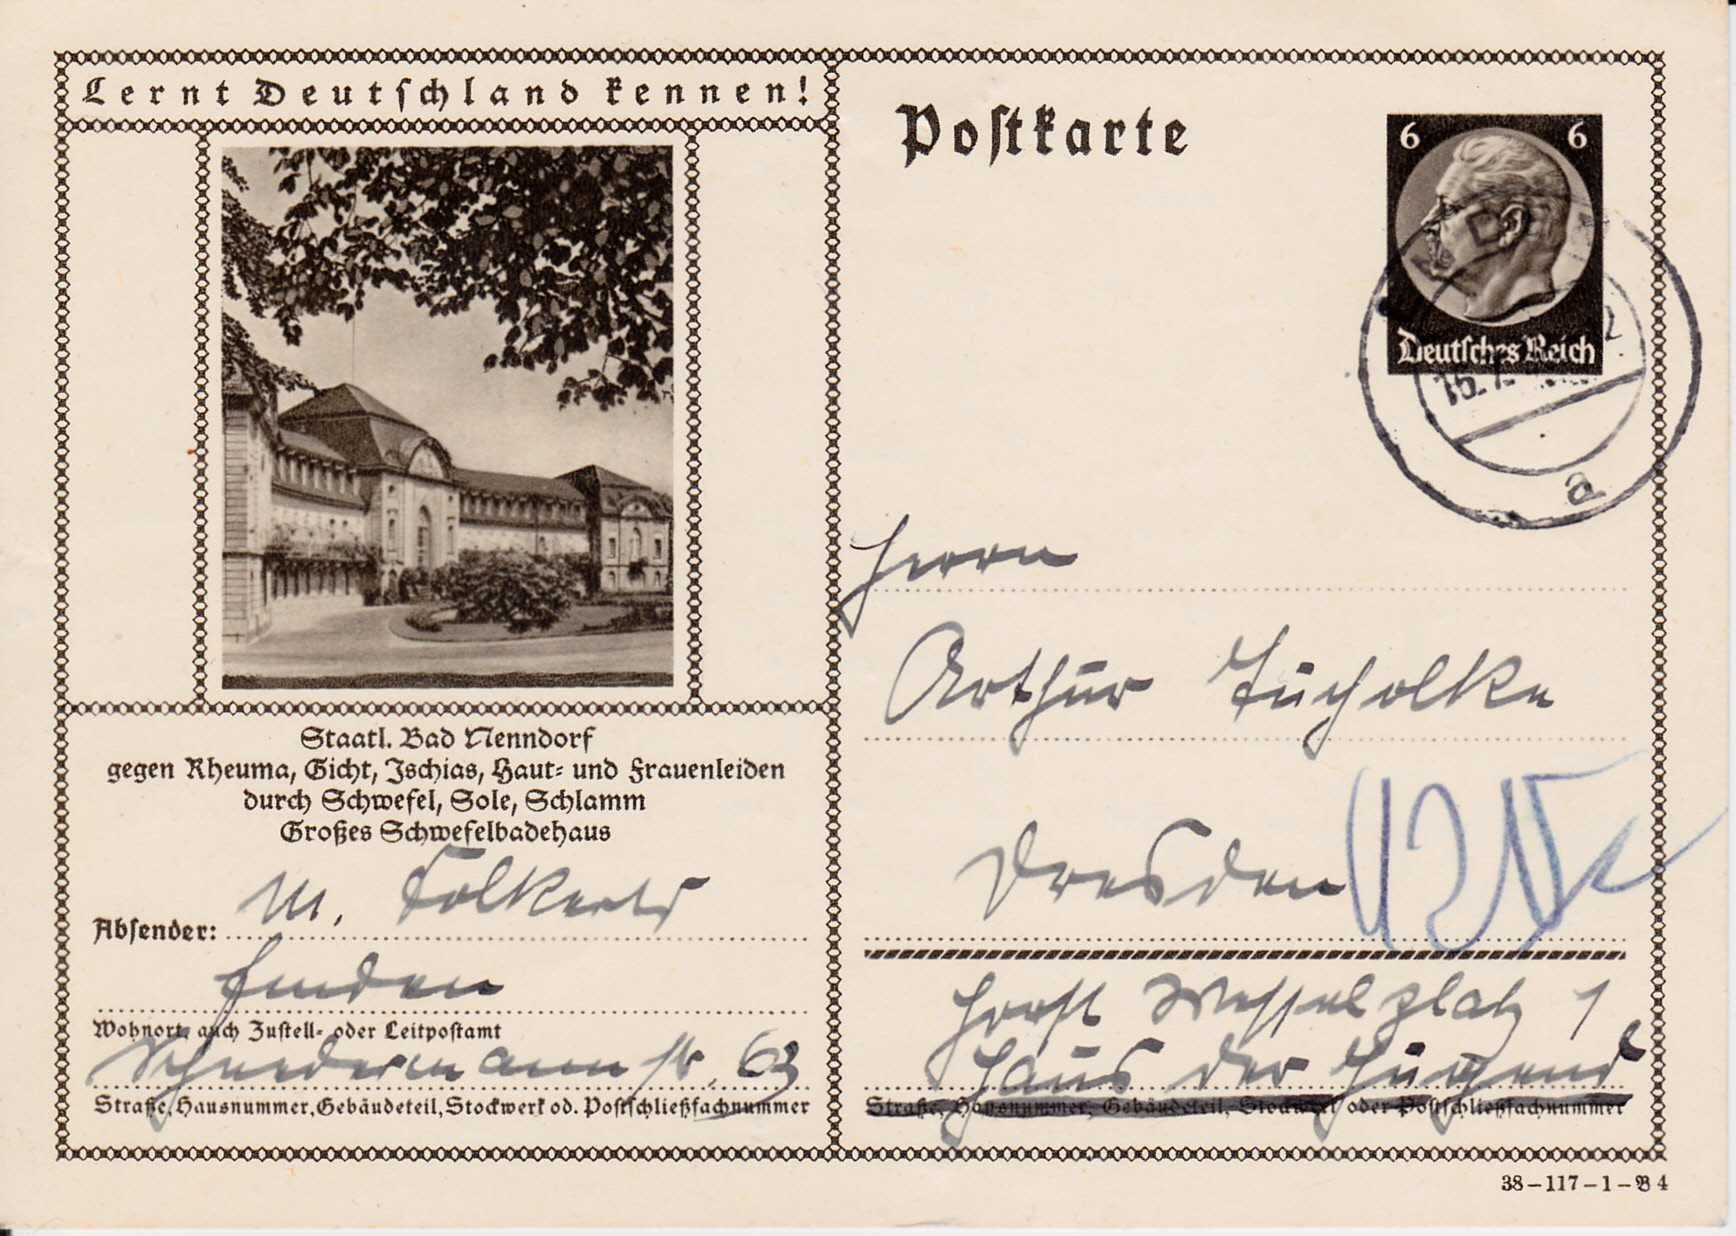 Lernt Deutschland kennen!
Postkarte
6 6
Deutsches Reich
16.7.
a
Staatl. Bad Nenndorf
gegen Rheuma, Gicht, Ischias, Haut- und Frauenleiden
durch Schwefel, Sole, Schlamm
Großes Schwefelbadehaus
Absender: M. Folkerts
Emden
Wohnort, auch Zustell- oder Leitpostamt
str. 63
Straße, Hausnummer, Gebäudeteil, Stockwerk od. Postschließfachnummer
Herrn
Arthur Tucholke
Dresden
Horst Wesselplatz 1
Haus der Jugend
Straße, Hausnummer, Gebäudeteil, Stockwerk oder Postschließfachnummer
38-117-1-B 4